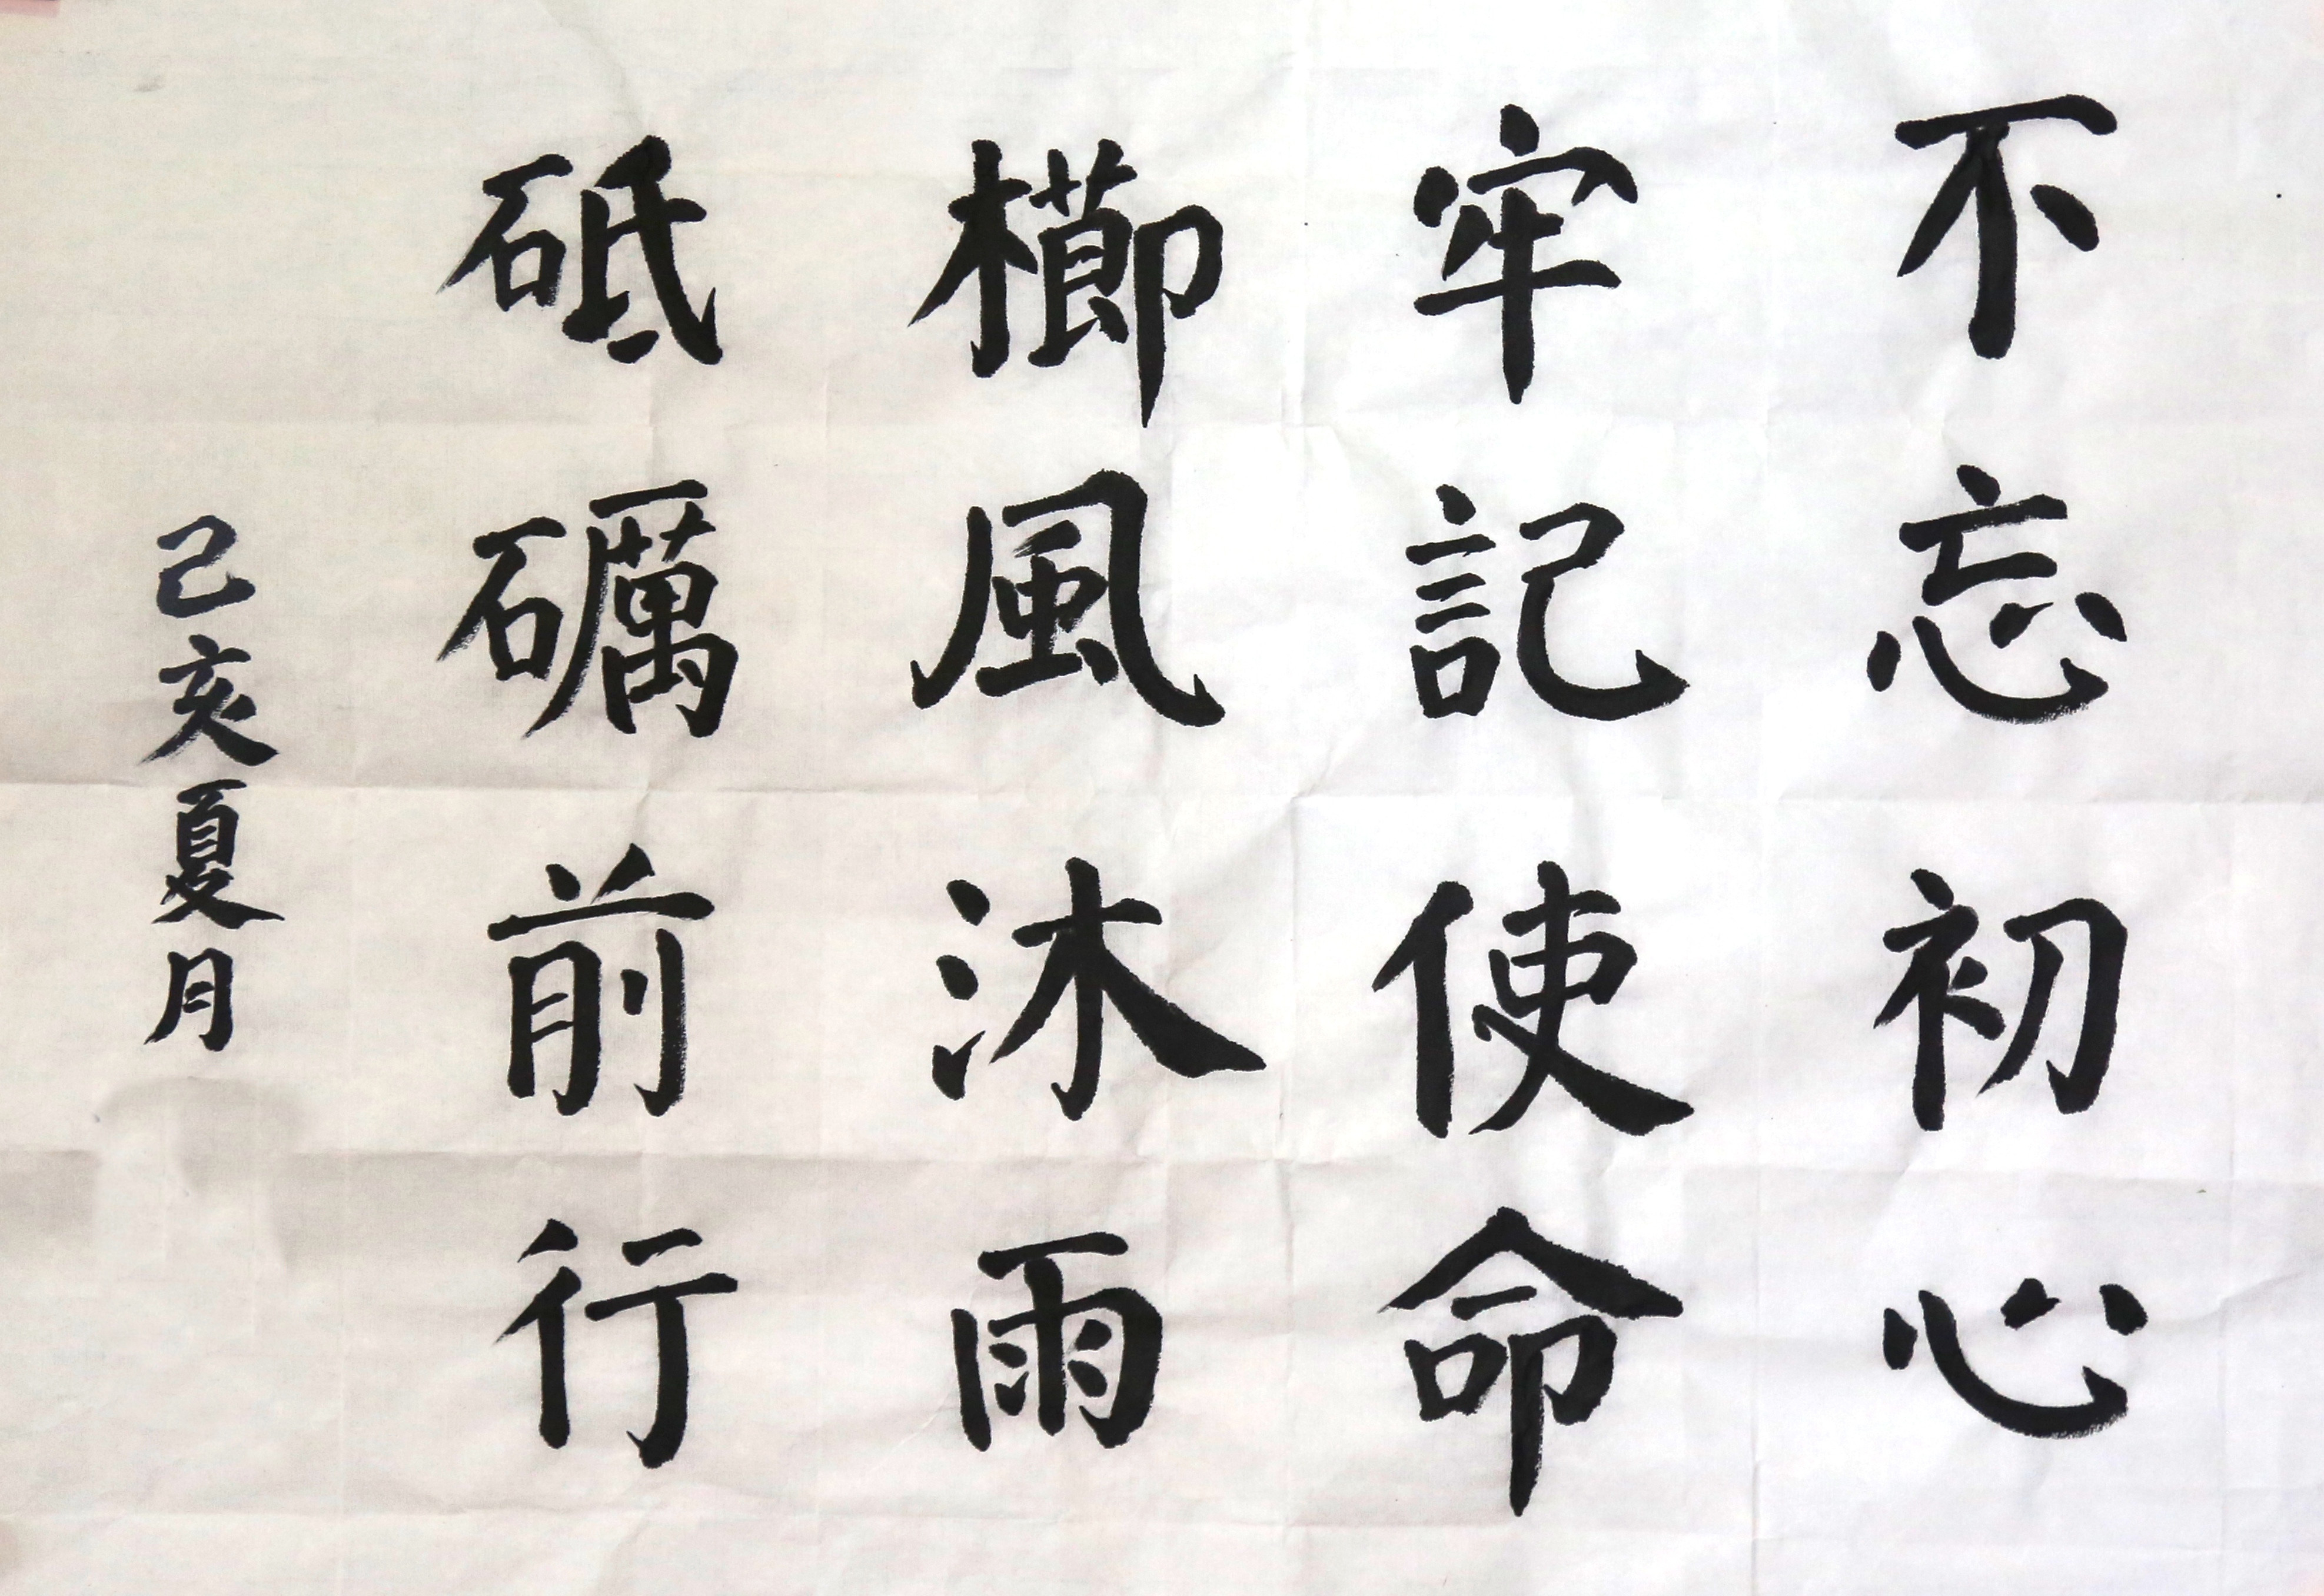 不忘初心
牢記使命
櫛風沐雨
砥礪前行
己亥夏月